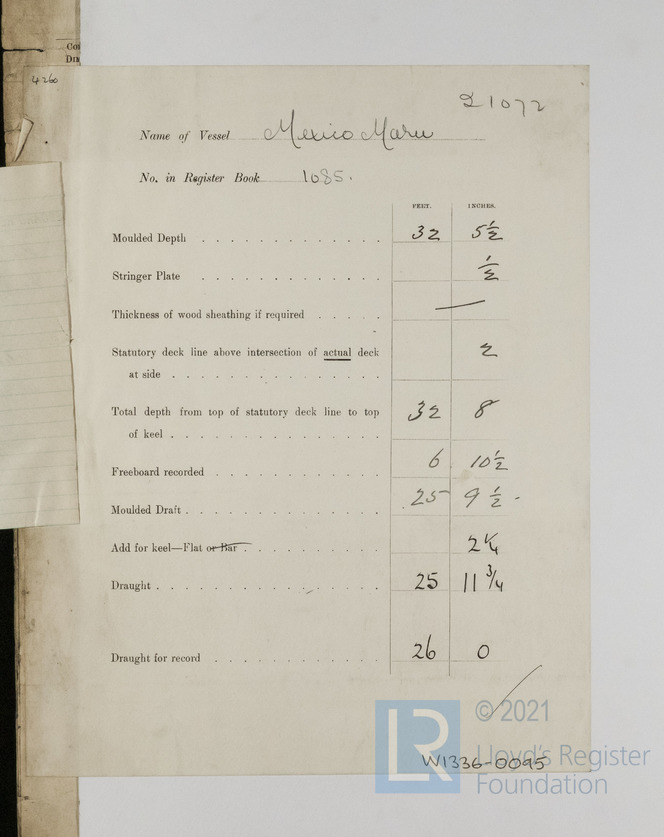 Co
Di
4260
21072
Name of Vessel Mexico Maru
No. in Register Book 1085.
FEET. INCHES.
Moulded Depth 32 5½
Stringer Plate ½
Thickness of wood sheathing if required —
Statutory deck line above intersection of actual deck 2
at side
Total depth from top of statutory deck line to top 32 8
of keel
Freeboard recorded 6 10½
Moulded Draft 25 9½
Add for keel—Flat or Bar 2¼
Draught 25 11¾
Draught for record 26 0
© 2021
LR
Lloyd's Register
W1336-0095
Foundation